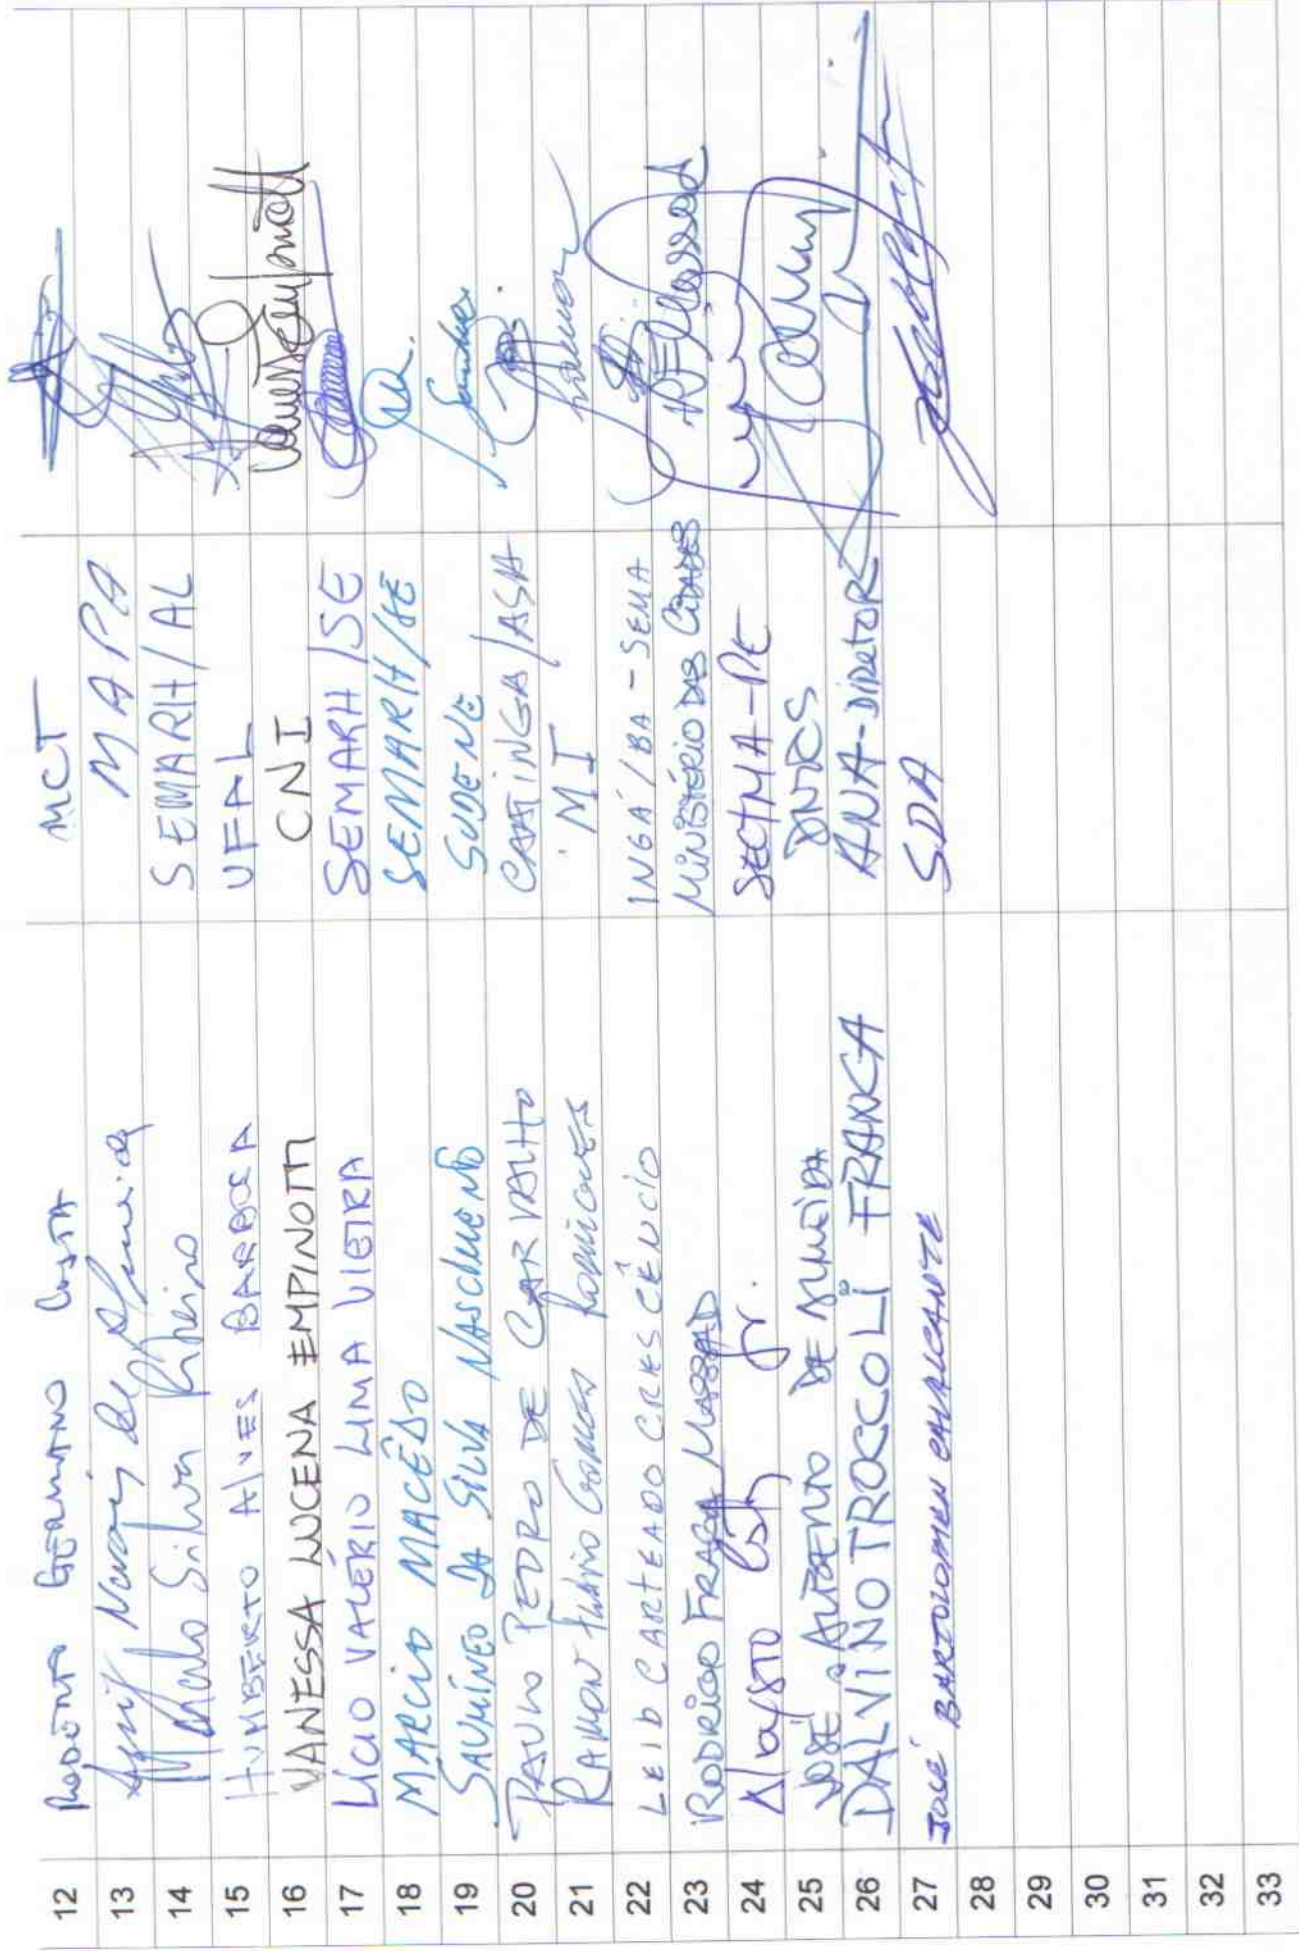 12 Roberto Germano Costa MCT
13 de Almeida MAPA
14 Marcelo Silva Ribeiro SEMARH/AL
15 HUMBERTO ALVES BARBOSA UFAL
16 VANESSA LUCENA EMPINOTTI CNI
17 LÍCIO VALÉRIO LIMA VIEIRA SEMARH/SE
18 MARCIO MACÊDO SEMARH/SE
19 SAUMÍNEO DA SILVA NASCIMENTO SUDENE
20 PAULO PEDRO DE CARVALHO CAATINGA/ASA
21 RAMON FLÁVIO GOMES RODRIGUES MI
22 LEID CARTEADO CRESCÊNCIO INGÁ/BA - SEMA
23 RODRIGO FRAGA MASSAD MINISTÉRIO DAS CIDADES
24 Costa Jr. SECTMA-PE
25 JOSÉ ALBERTO DE ALMEIDA DNOCS
26 DALVINO TROCCOLI FRANCA ANA-DIRETOR
27 JOSÉ BARTOLOMEU CAVALCANTE SDA
28
29
30
31
32
33